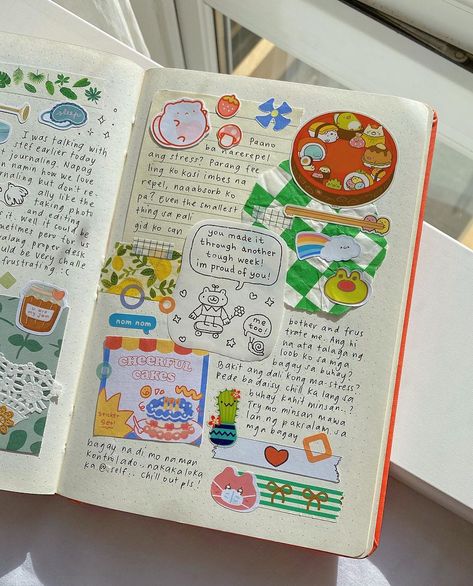 I was talking with
stef earlier today
journaling. Napag
n namin how we love
rnaling but don't
ally like the
taking photo
and editing
it. well it could be
metimes pero
alang proper desk
ould be very challe
frustrating :c
sleep
Paano
ba narerepel
ang stress? Parang fee
ling ko kasi imbes na
repel, naaabsorb ko
pa? Even the smallest
thing sa pali
gid ko can
you made it
through another
tough week!
im proud of you!
me
too!
nom nom
CHEERFUL
CAKES
Sticker
Set!
bother and frus
trate me. Ang hi
na ata talaga ng
loob ko sa mga
bagay sa buhay.
Bakit ang dali kong ma-stress?
Pede ba daisy chill ka lang sa
buhay kahit minsan..?
Try mo minsan mawa
lan ng paksalam sa
mga bagay
bagay na di mo naman
kontrolado.. nakakaloka
ka @self.. chill out pls!